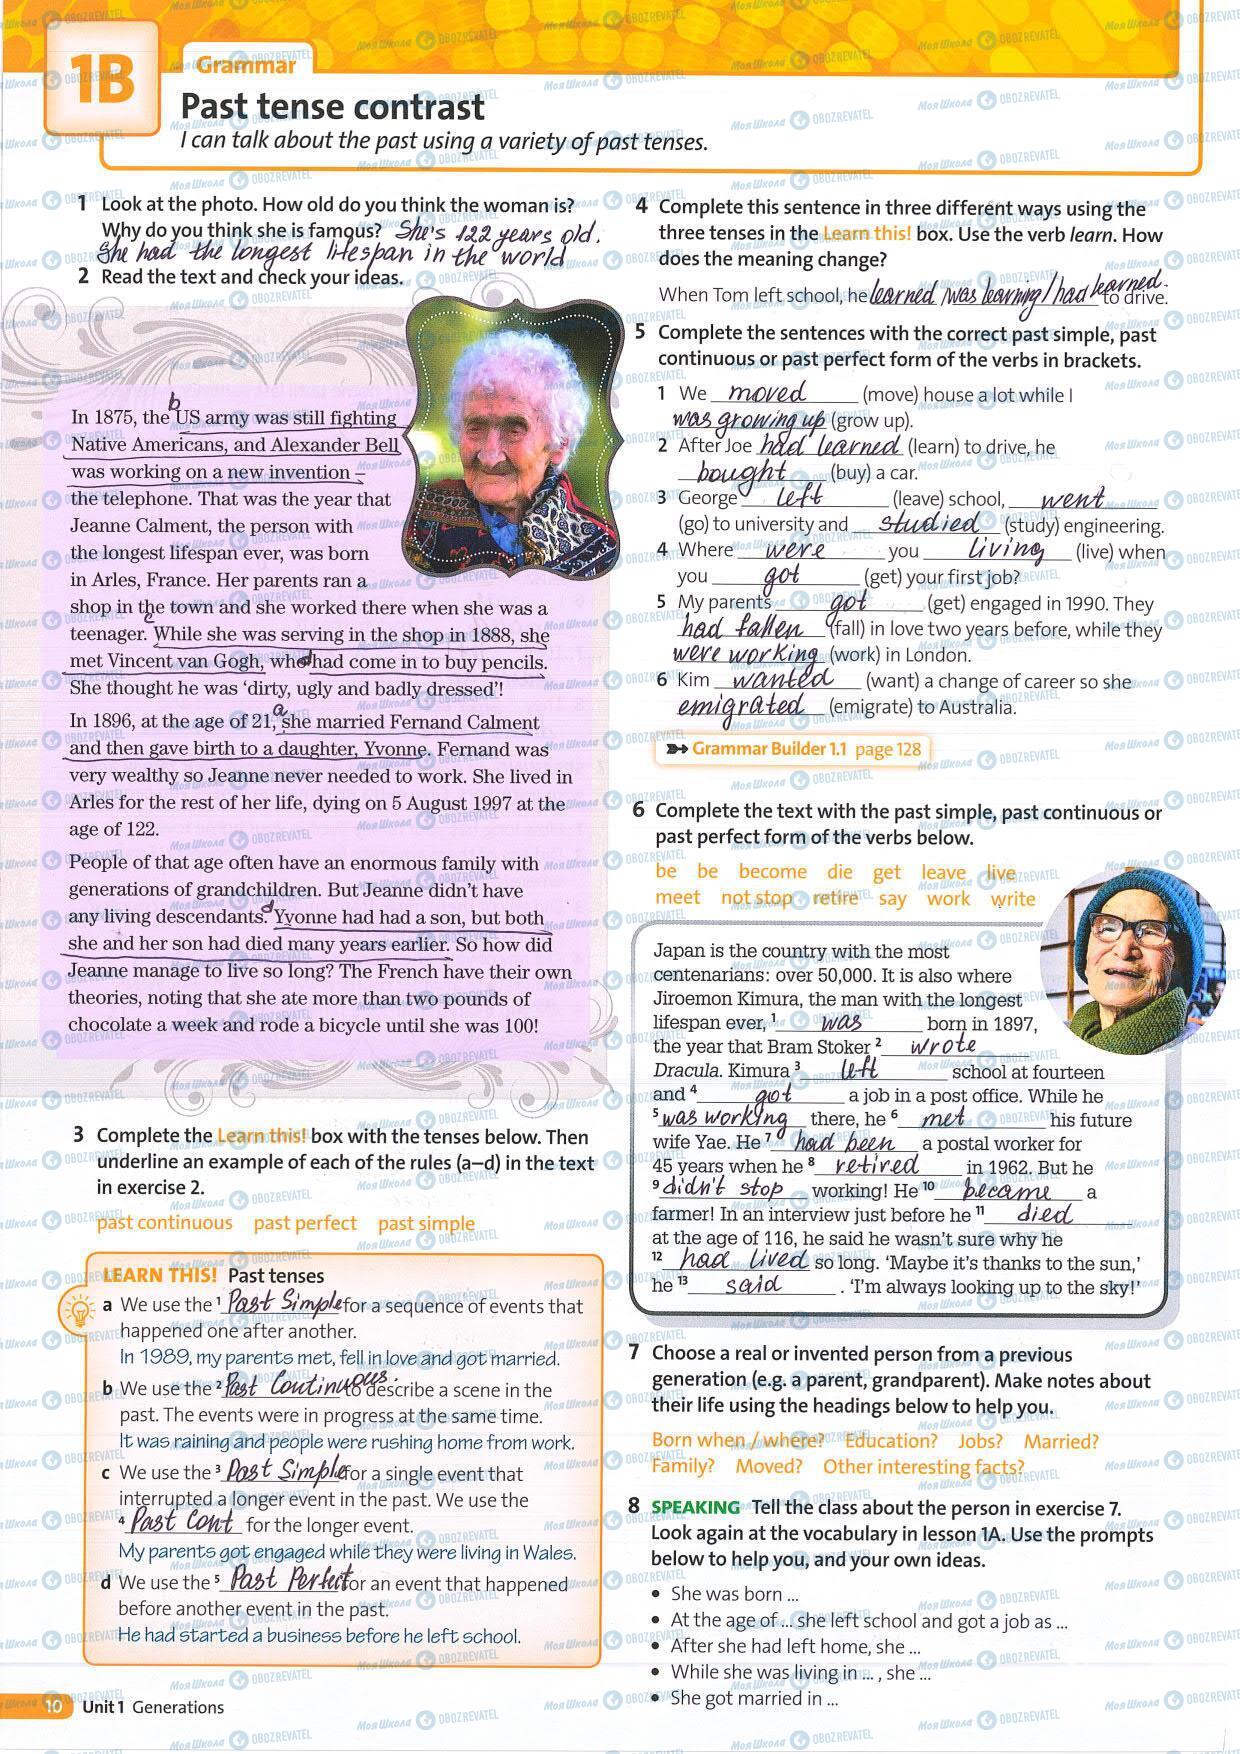 1B
Grammar
Past tense contrast
I can talk about the past using a variety of past tenses.
1 Look at the photo. How old do you think the woman is?
Why do you think she is famous? She's 122 years old.
She had the longest lifespan in the world
2 Read the text and check your ideas.
b
In 1875, the US army was still fighting
Native Americans, and Alexander Bell
was working on a new invention –
the telephone. That was the year that
Jeanne Calment, the person with
the longest lifespan ever, was born
in Arles, France. Her parents ran a
shop in the town and she worked there when she was a
c
teenager. While she was serving in the shop in 1888, she
met Vincent van Gogh, who had come in to buy pencils.
d
She thought he was 'dirty, ugly and badly dressed'!
a
In 1896, at the age of 21, she married Fernand Calment
and then gave birth to a daughter, Yvonne. Fernand was
very wealthy so Jeanne never needed to work. She lived in
Arles for the rest of her life, dying on 5 August 1997 at the
age of 122.
People of that age often have an enormous family with
generations of grandchildren. But Jeanne didn't have
any living descendants. d Yvonne had had a son, but both
she and her son had died many years earlier. So how did
Jeanne manage to live so long? The French have their own
theories, noting that she ate more than two pounds of
chocolate a week and rode a bicycle until she was 100!
3 Complete the Learn this! box with the tenses below. Then
underline an example of each of the rules (a–d) in the text
in exercise 2.
past continuous past perfect past simple
LEARN THIS! Past tenses
a We use the 1 Past Simple for a sequence of events that
happened one after another.
In 1989, my parents met, fell in love and got married.
b We use the 2 Past Continuous. to describe a scene in the
past. The events were in progress at the same time.
It was raining and people were rushing home from work.
c We use the 3 Past Simple for a single event that
interrupted a longer event in the past. We use the
4 Past Cont for the longer event.
My parents got engaged while they were living in Wales.
d We use the 5 Past Perfect for an event that happened
before another event in the past.
He had started a business before he left school.
10 Unit 1 Generations
4 Complete this sentence in three different ways using the
three tenses in the Learn this! box. Use the verb learn. How
does the meaning change?
When Tom left school, he learned /was learning/ had learned to drive.
5 Complete the sentences with the correct past simple, past
continuous or past perfect form of the verbs in brackets.
1 We moved (move) house a lot while I
was growing up (grow up).
2 After Joe had learned (learn) to drive, he
bought (buy) a car.
3 George left (leave) school, went
(go) to university and studied (study) engineering.
4 Where were you living (live) when
you got (get) your first job?
5 My parents got (get) engaged in 1990. They
had fallen (fall) in love two years before, while they
were working (work) in London.
6 Kim wanted (want) a change of career so she
emigrated (emigrate) to Australia.
Grammar Builder 1.1 page 128
6 Complete the text with the past simple, past continuous or
past perfect form of the verbs below.
be be become die get leave live
meet not stop retire say work write
Japan is the country with the most
centenarians: over 50,000. It is also where
Jiroemon Kimura, the man with the longest
lifespan ever, 1 was born in 1897,
the year that Bram Stoker 2 wrote
Dracula. Kimura 3 left school at fourteen
and 4 got a job in a post office. While he
5 was working there, he 6 met his future
wife Yae. He 7 had been a postal worker for
45 years when he 8 retired in 1962. But he
9 didn't stop working! He 10 became a
farmer! In an interview just before he 11 died
at the age of 116, he said he wasn't sure why he
12 had lived so long. 'Maybe it's thanks to the sun,'
he 13 said . 'I'm always looking up to the sky!'
7 Choose a real or invented person from a previous
generation (e.g. a parent, grandparent). Make notes about
their life using the headings below to help you.
Born when / where? Education? Jobs? Married?
Family? Moved? Other interesting facts?
8 SPEAKING Tell the class about the person in exercise 7.
Look again at the vocabulary in lesson 1A. Use the prompts
below to help you, and your own ideas.
• She was born ...
• At the age of ... she left school and got a job as ...
• After she had left home, she ...
• While she was living in ... , she ...
• She got married in ...
Моя Школа OBOZREVATEL